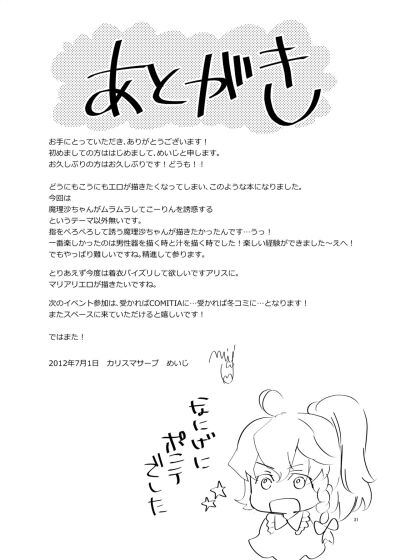 あとがき
お手にとっていただき、ありがとうございます！
初めましての方ははじめまして、めいじと申します。
お久しぶりの方はお久しぶりです！どうも！！
どうにもこうにもエロが描きたくなってしまい、このような本になりました。
今回は
魔理沙ちゃんがムラムラしてこーりんを誘惑する
というテーマ以外無いです。
指をぺろぺろして誘う魔理沙ちゃんが描きたかったんです…うっ！
一番楽しかったのは男性器を描く時と汁を描く時でした！楽しい経験ができました～えへ！
でもやっぱり難しいですね。精進して参ります。
とりあえず今度は着衣パイズリして欲しいですアリスに。
マリアリエロが描きたいですね。
次のイベント参加は、受かればCOMITIAに…受かれば冬コミに…となります！
またスペースに来ていただけると嬉しいです！
ではまた！
2012年7月1日　カリスマサーブ　めいじ
なにげに
ポニテ
でした
31